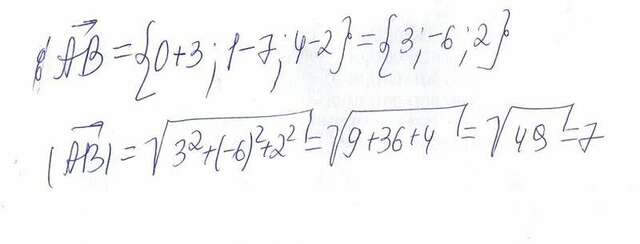 AB = {0+3; 1-7; 4-2} = {3; -6; 2}
|AB| = √3²+(-6)²+2² = √9+36+4 = √49 = 7